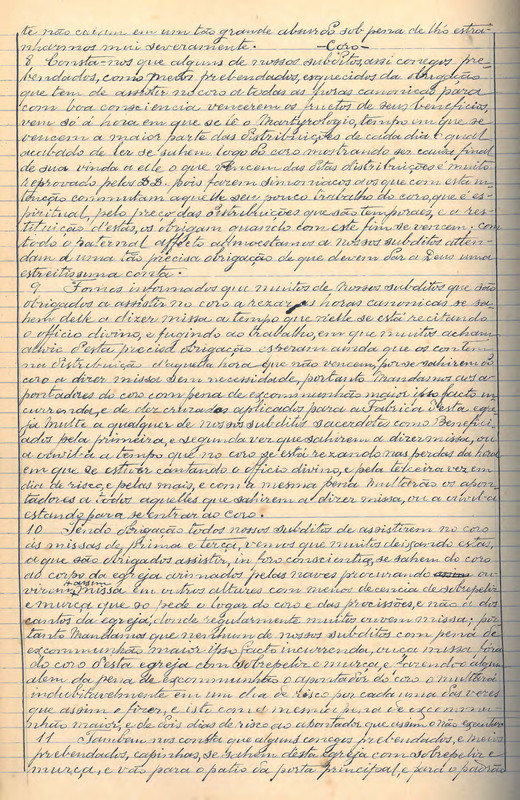 te não caiam em um tão grande absurdo sob pena de lhe estra-
nharmos mui severamente. -Coro-
8 Consta-nos que alguns de nossos subditos, assi conegos pre-
bendados, como meios prebendados, esquecidos da obrigação
que tem de assistir no coro a todas as horas canonicas para
com boa consciencia vencerem os fructos de seus beneficios,
vem só á hora em que se lê o Martyrologio, tempo em que se
vencem a maior parte das distribuições de cada dia o qual
acabado de ler se sahem logo do coro mostrando ser causa final
de sua vinda a elle o que vencem das ditas distribuições é muito
reprovado pelos D.D. pois fazem simoniacos aos que com esta in-
tenção commutam aquelle seu pouco trabalho do coro, que é es-
piritual, pelo preço das distribuições que são temporaes, e a res-
tituição d'estas, os obrigam quando com este fim se vencem; com
todo o paternal affecto admoestamos a nossos subditos atten-
dam a uma tão precisa obrigação de que devem dar a Deus uma
estreitissima conta.
9 Fomos informados que muitos de Nossos subditos que são
obrigados a assistir no coro a rezar as horas canonicas se sa-
hem delle a dizer missa a tempo que n'elle se está recitando
o officio divino, e fugindo ao trabalho, em que muitos acham
alivio d'esta precisa obrigação esperam ainda que os contem
na distribuição d'aquella hora que não vencem, por se sahirem do
coro a dizer missa sem necessidade, portanto Mandamos aos a-
pontadores do coro com pena de excommunhão maior ipso facto in-
currenda, e de dez cruzados aplicados para a Fabrica d'esta egre-
ja multe a qualquer de nossos subditos sacerdotes como Benefici-
ados pela primeira, e segunda vez que sahirem a dizer missa, ou
a ouvil-a a tempo que no coro se está rezando nas perdas da hora
em que se estiver cantando o officio divino, e pela terceira vez em
dia de risco, e pelas mais, e com a mesma pena multarão os apon-
tadores a todos aquelles que sahirem a dizer missa, ou a ouvil-a
estando para se entrar ao coro.
10 Tendo obrigação todos nossos subditos de assistirem no coro
ás missas de prima e terça, vemos que muitos deixando estas,
a que são obrigados assistir, in foro conscientiæ, se sahem do coro
ao corpo da egreja arimados pelas naves procurando ou-
virem assim missa em outros altares com menos decencia de sobrepeliz
e murça que só pede o logar do coro e das procissões, e não a dos
cantos da egreja, donde regularmente muitos ouvem missa; por
tanto Mandamos que nenhum de nossos subditos com pena de
excommunhão maior Ipso facto incurrenda, ouça missa fora
do coro d'esta egreja com sobrepeliz e murça, e fazendo-o algum
alem da pena de excommunhão o apontador do coro o multará
indubitavelmente em um dia de risco por cada uma das vezes
que assim o fizer, e isto com a mesma pena de excommu-
nhão maior, e de dois dias de risco ao apontador que assim o não executar.
11 Tambem nos consta que alguns conegos prebendados, e meios
prebendados, capinhas, se sahem desta egreja com sobrepeliz e
murça, e vão para o patio da porta principal, e para o padrão